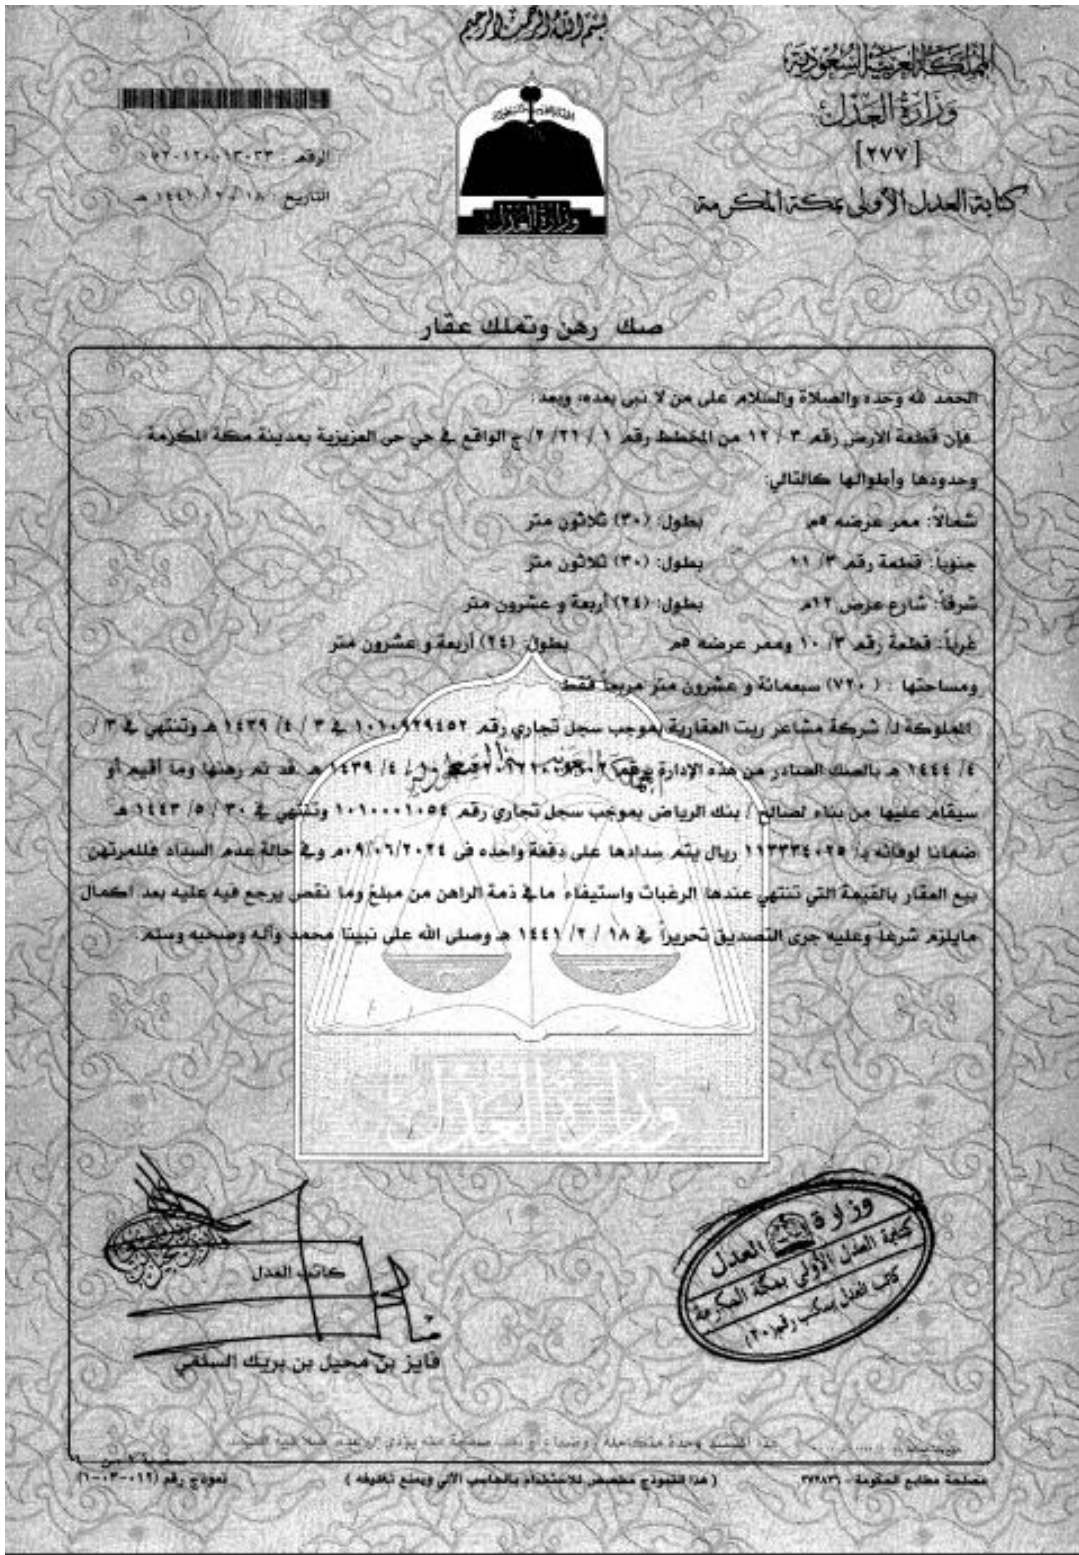 بسم الله الرحمن الرحيم
المملكة العربية السعودية
وزارة العدل
[٢٧٧]
كتابة العدل الأولى بمكة المكرمة
الرقم :
التاريخ : ١٨ / ٢ / ١٤٤١ هـ
وزارة العدل
صك رهن وتملك عقار
الحمد لله وحده والصلاة والسلام على من لا نبي بعده، وبعد:
فإن قطعة الارض رقم ٣ / ١٢ من المخطط رقم ١ / ٢١/ ٢/ ج الواقع في حي حي العزيزية بمدينة مكة المكرمة .
وحدودها وأطوالها كالتالي:
شمالاً: ممر عرضه ٥م بطول: (٣٠) ثلاثون متر
جنوباً: قطعة رقم ٣/ ١١ بطول: (٣٠) ثلاثون متر
شرقاً: شارع عرض ١٢م بطول: (٢٤) أربعة و عشرون متر
غرباً: قطعة رقم ٣/ ١٠ وممر عرضه ٥م بطول: (٢٤) أربعة و عشرون متر
ومساحتها : ( ٧٢٠) سبعمائة و عشرون متر مربعاً فقط
المملوكة لـ/ شركة مشاعر ريت العقارية بموجب سجل تجاري رقم ١٠١٠٩٢٩٤٥٢ في ٣ / ٤/ ١٤٣٩ هـ وتنتهي في ٣ /
٤/ ١٤٤٤ هـ بالصك الصادر من هذه الإدارة برقم / ٤/ ١٤٣٩ هـ قد تم رهنها وما أقيم أو
سيقام عليها من بناء لصالح / بنك الرياض بموجب سجل تجاري رقم ١٠١٠٠٠١٠٥٤ وتنتهي في ٣٠ / ٥/ ١٤٤٣ هـ
ضمانا لوفائه بـ/ ١١٣٣٣٤٠٢٥ ريال يتم سدادها على دفعة واحده فى ٠٩/٠٦/٢٠٢٤م وفي حالة عدم السداد فللمرتهن
بيع العقار بالقيمة التي تنتهي عندها الرغبات واستيفاء مافي ذمة الراهن من مبلغ وما نقص يرجع فيه عليه بعد اكمال
مايلزم شرعاً وعليه جرى التصديق تحريراً في ١٨ / ٢/ ١٤٤١ هـ وصلى الله على نبينا محمد وآله وصحبه وسلم.
وزارة العدل
وزارة العدل
كتابة العدل الأولى بمكة المكرمة
كاتب العدل بمكتب رقم (٢٠)
كاتب العدل
فايز بن محيل بن بريك السلمي
هذا المستند وحدة متكاملة
مصلحة مطابع الحكومة - ٣٧٢٨٣٦
( هذا النموذج مخصص للاستخدام بالحاسب الآلي ويمنع تغليفه )
نموذج رقم (١٢-٠٣-٠١)